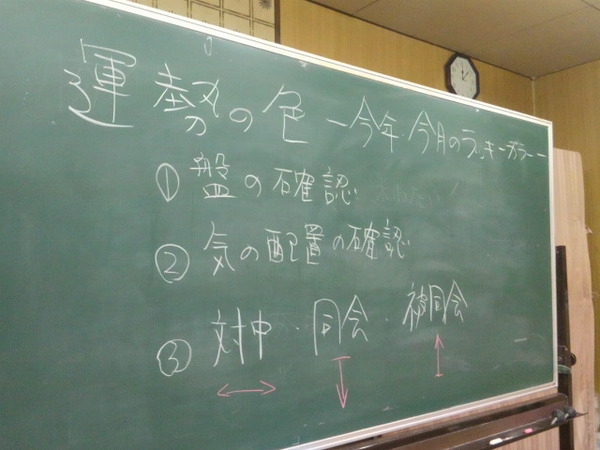 運勢の色 ―今年・今月のラッキーカラー―
① 盤の確認
② 気の配置の確認
③ 対中・同会・被同会